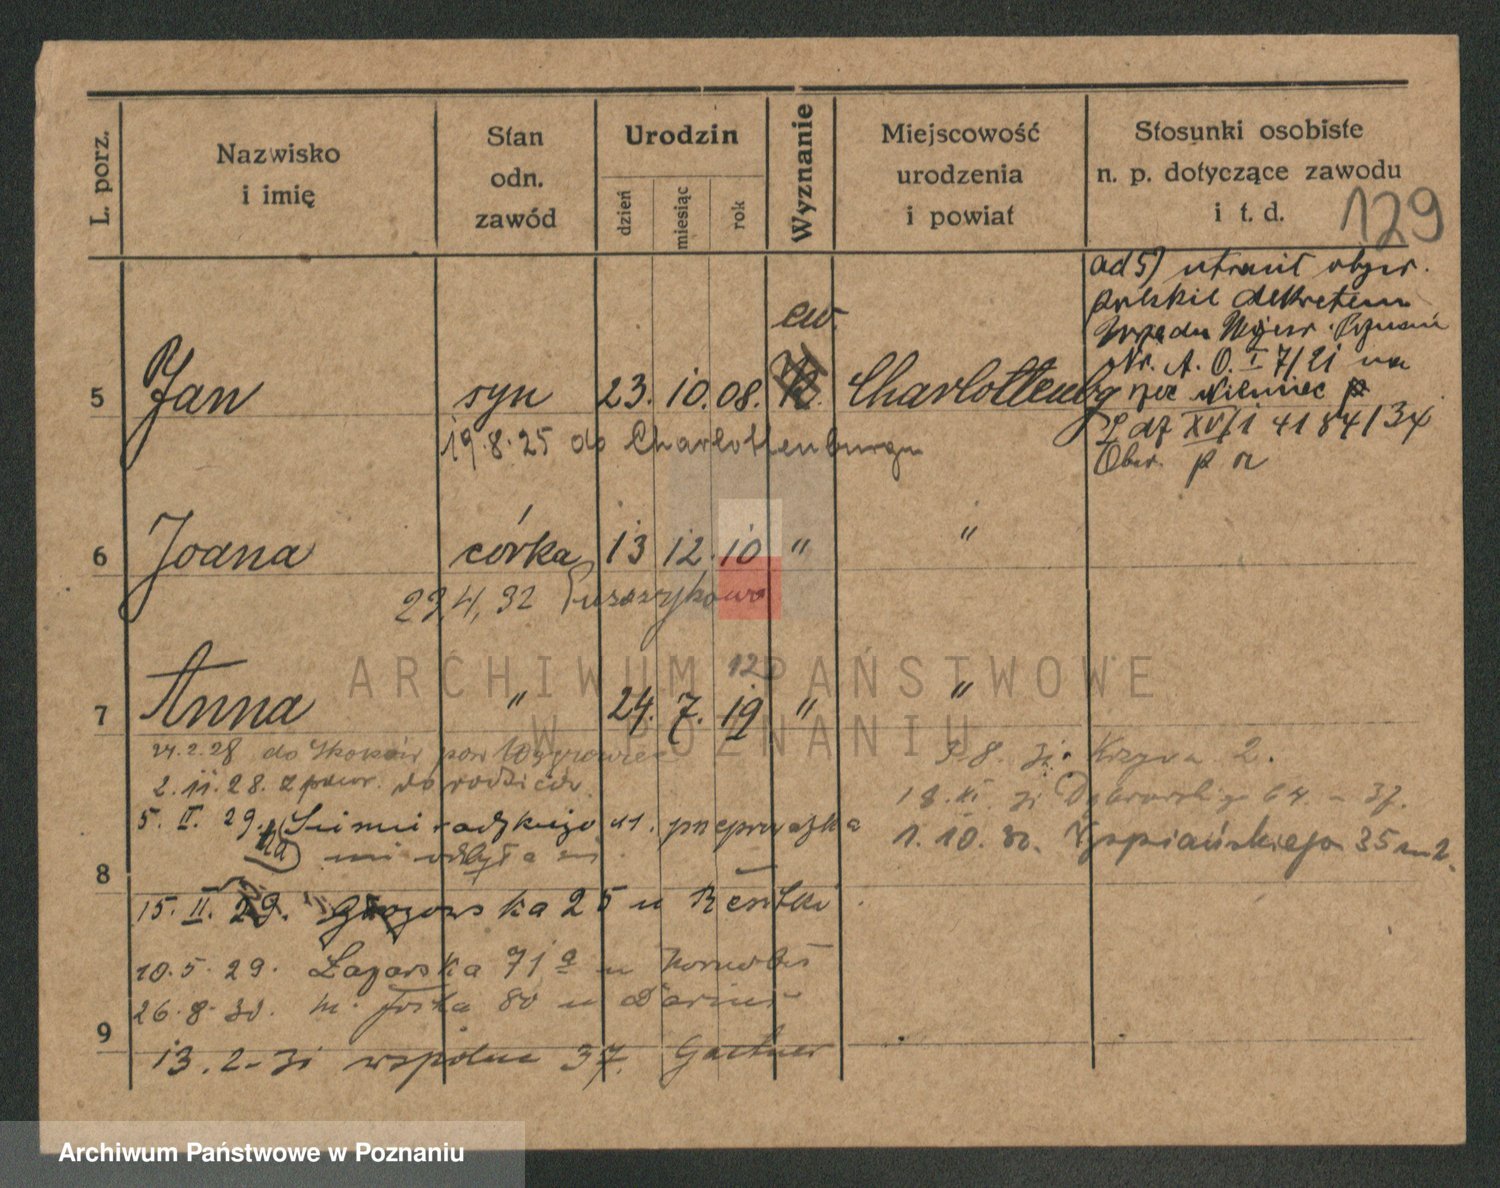 L. porz.
Nazwisko
i imię
Stan
odn.
zawód
Urodzin
dzień
miesiąc
rok
Wyznanie
Miejscowość
urodzenia
i powiat
Stosunki osobiste
n. p. dotyczące zawodu
i t. d.
129
ad 5) utracił obyw.
polskie dekretem
Urzędu Wojew. Poznań
Nr. A. O. I 7/21 na
rzec Niemiec
L dz XVI/1 4184/34
5 Jan syn 23. 10. 08. ew. Charlottenbg
19.8.25 do Charlottenburga
6 Joana córka 13 12. 10 " "
23,4,32 Puszczykowo
7 Anna " 24. 7. 19 " "
12
24.2.28 do Skoków pow Wągrowiec
2.11.28. z powr. do rodziców
5. II. 29. 11. przeprowadzka
nie odbyła się
3 8. 31. Krzywa 2.
18. XI. 31 Dąbrowskiego 64. - 37.
1. 10. 32. Wyspiańskiego 35 m 2.
8
15. II. 29. Głogowska 25 u
10. 5. 29. Łazarska 71a u
26. 8. 30. m. Focha 80 u
9
13. 2. 31 wspólna 37. Gartner
ARCHIWUM PAŃSTWOWE
W POZNANIU
Archiwum Państwowe w Poznaniu